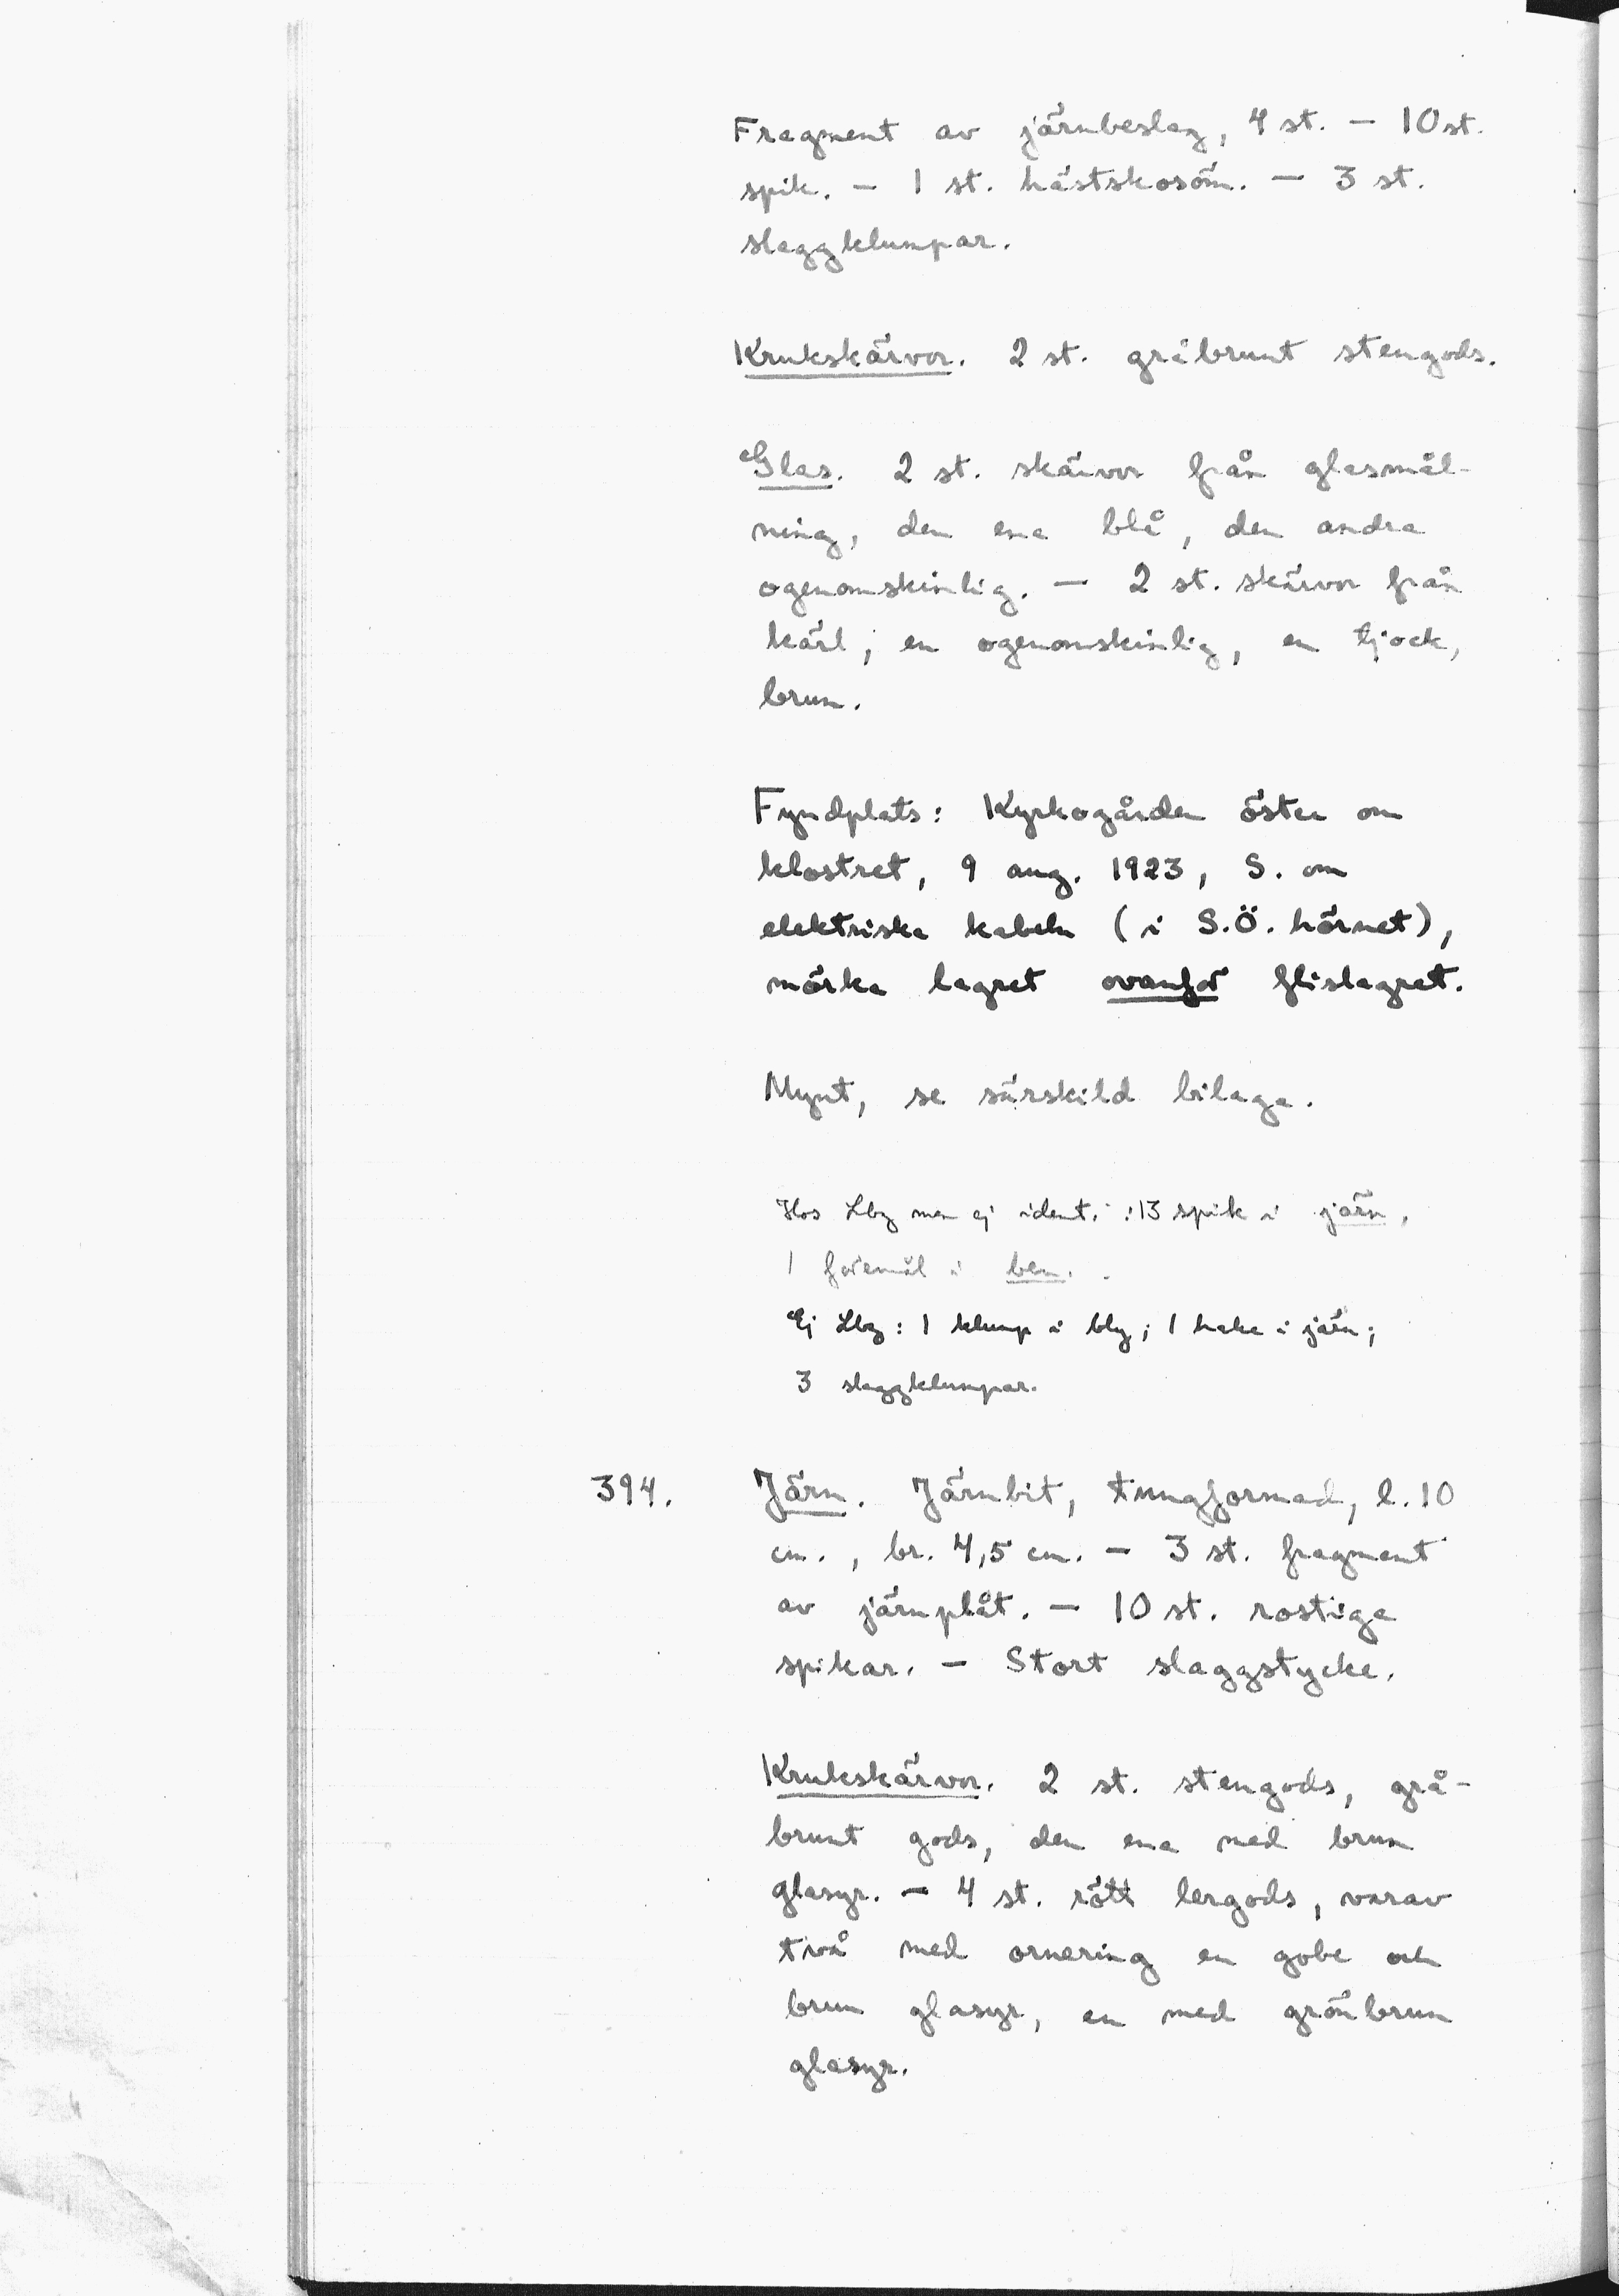 Fragment av järnbeslag, 4 st. — 10 st.
spik. — 1 st. hästskosöm. — 3 st.
slaggklumpar.
Krukskärvor. 2 st. gråbrunt stengods.
Glas. 2 st. skärvor från glasmål-
ning, den ena blå, den andra
ogenomskinlig. — 2 st. skärvor från
kärl; en ogenomskinlig, en tjock,
brun.
Fyndplats: Kyrkogården öster om
klostret, 9 aug. 1923, S. om
elektriska kabeln (i S.Ö. hörnet),
mörka lagret ovanför flislagret.
Mynt, se särskild bilaga.
Hos Lbg men ej ident.: 13 spik i järn,
1 föremål i ben.
Ej Lbg: 1 klump i bly; 1 hake i järn;
3 slaggklumpar.
394. Järn. Järnbit, tungformad, l. 10
cm., br. 4,5 cm. — 3 st. fragment
av järnplåt. — 10 st. rostiga
spikar. — Stort slaggstycke.
Krukskärvor. 2 st. stengods, grå-
brunt gods, den ena med brun
glasyr. — 4 st. rött lergods, varav
två med ornering en gobe och
brun glasyr, en med grönbrun
glasyr.